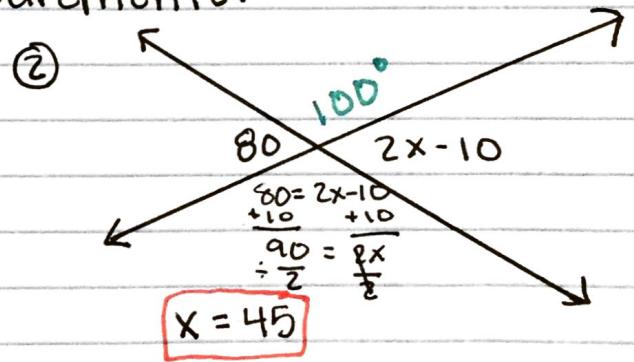 ②
100°
80 2x-10
80=2x-10
+10 +10
90 = 2x
÷2 2
x = 45